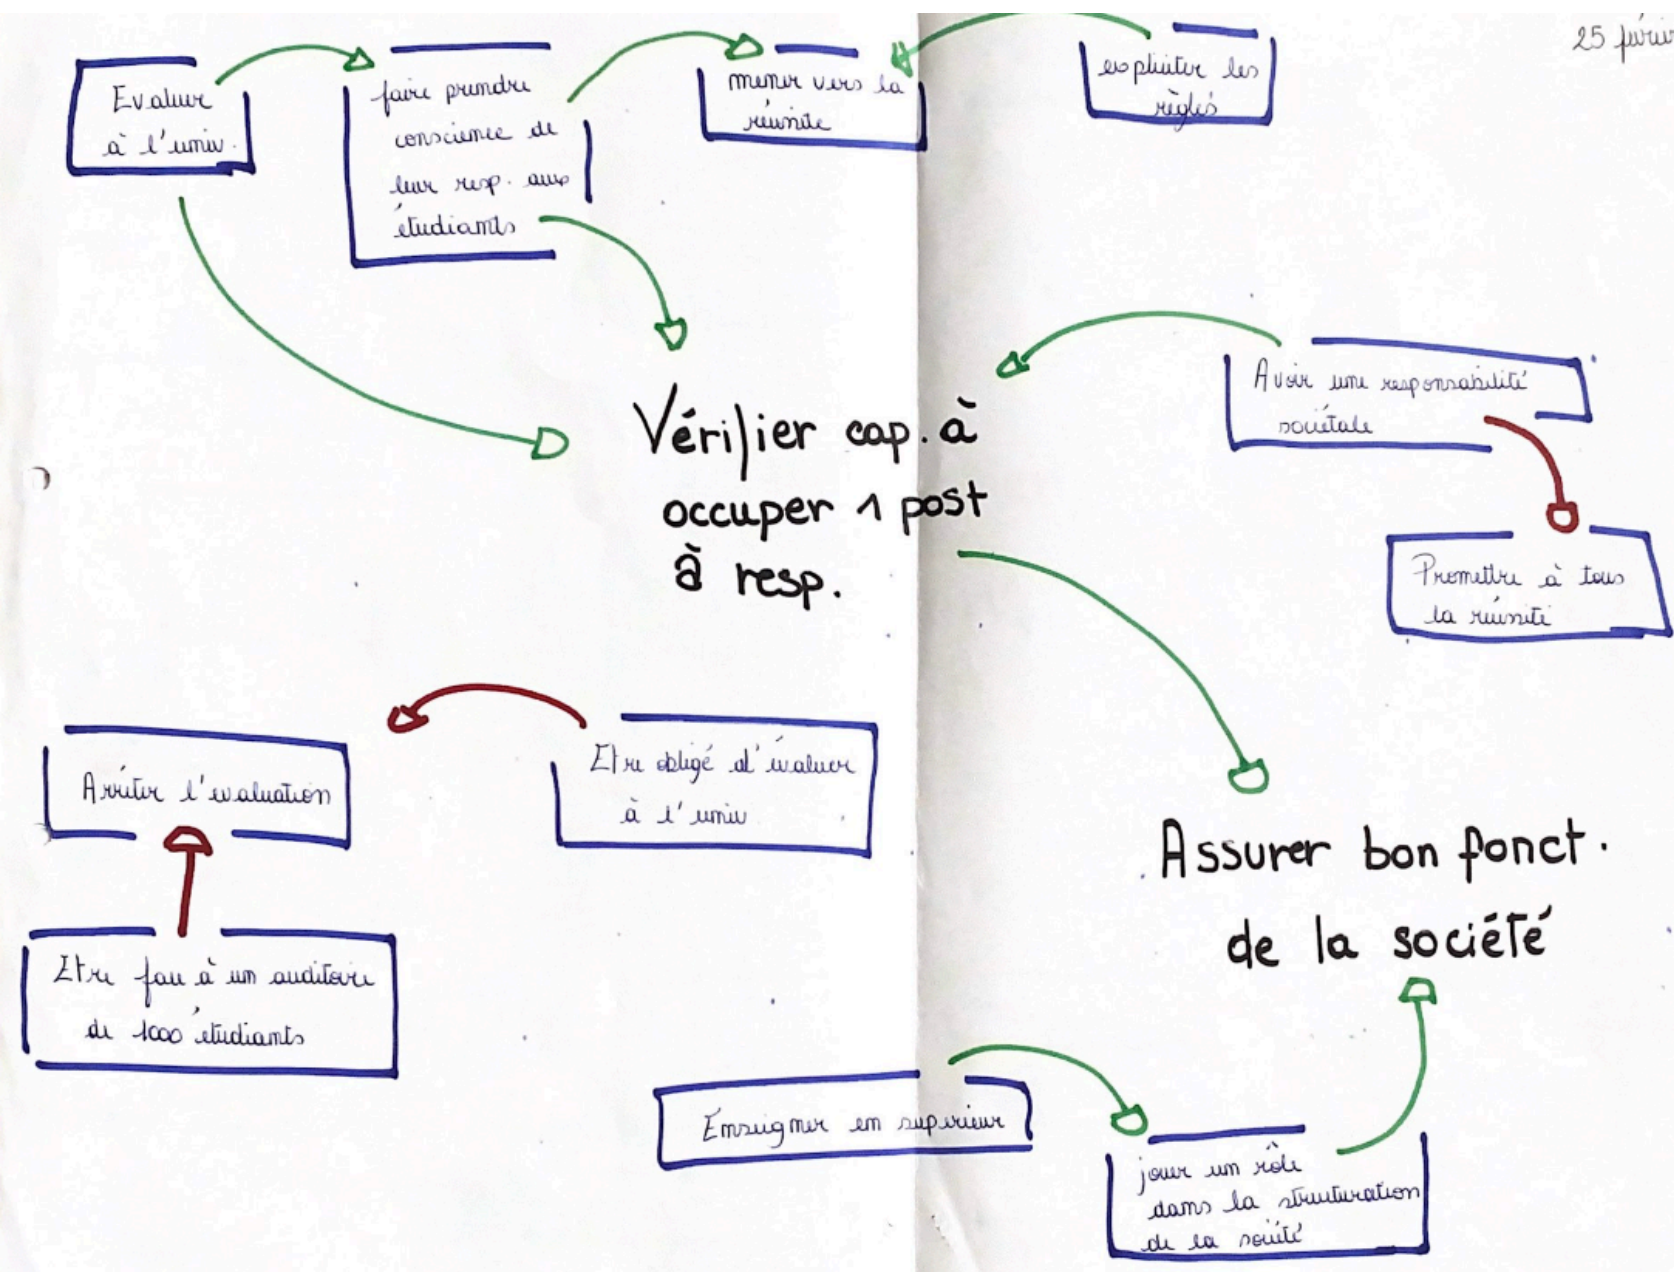 25
Evaluer
à l'univ.
faire prendre
conscience de
leur resp. aux
étudiants
mener vers la
réussite
expliciter les
règles
Vérifier cap. à
occuper 1 post
à resp.
Avoir une responsabilité
sociétale
Promettre à tous
la réussite
Arrêter l'évaluation
Etre obligé d'évaluer
à l'univ
Etre face à un auditoire
de 1000 étudiants
Assurer bon fonct.
de la société
Enseigner en supérieur
jouer un rôle
dans la structuration
de la société